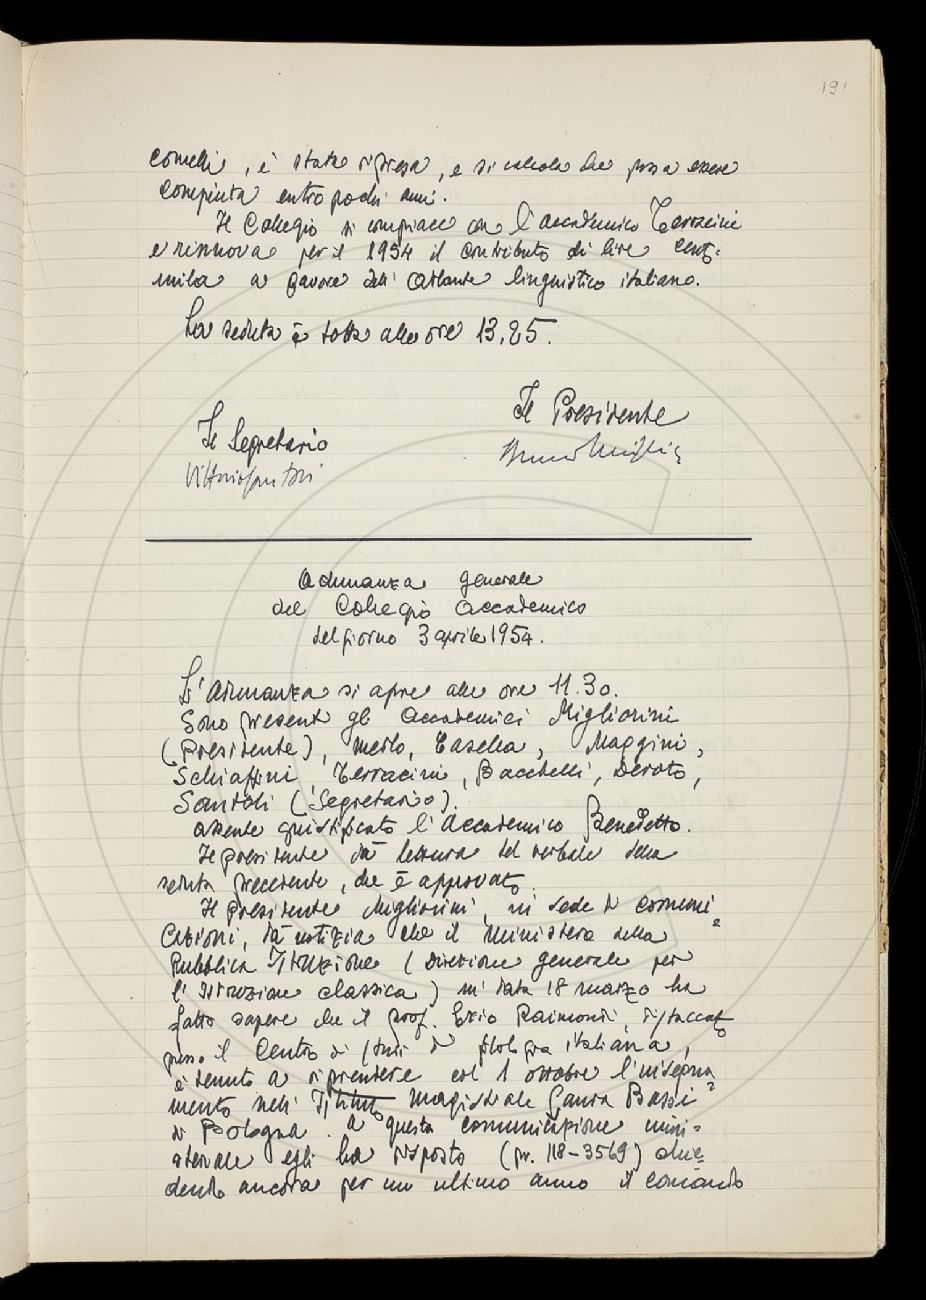 191
comelli, è stata ripresa, e si calcola che possa essere
compiuta entro pochi anni.
Il Collegio si compiace con l'accademico Terracini
e rinnova per il 1954 il contributo di lire cento=
mila a favore dell'Atlante linguistico italiano.
La seduta è tolta alle ore 13,25.
Il Presidente
Il Segretario
Vittorio Santoli
Adunanza generale
del Collegio Accademico
del giorno 3 aprile 1954.
L'adunanza si apre alle ore 11.30.
Sono presenti gli Accademici Migliorini
(Presidente), Merlo, Casella, Maggini,
Schiaffini, Terracini, Bacchelli, Devoto,
Santoli (Segretario).
Assente giustificato l'Accademico Benedetto.
Il presidente dà lettura del verbale della
seduta precedente, che è approvato.
Il presidente Migliorini, in sede di comuni=
cazioni, dà notizia che il Ministero della
Pubblica Istruzione (Direzione generale per
l'Istruzione classica) in data 18 marzo ha
fatto sapere che il prof. Ezio Raimondi, distaccato
presso il Centro di studi di filologia italiana,
è tenuto a riprendere col 1 ottobre l'insegna=
mento nell'Istituto magistrale Laura Bassi
di Bologna. A questa comunicazione mini=
steriale egli ha risposto (pr. 118-3569) chie=
dendo ancora per un ultimo anno il comando